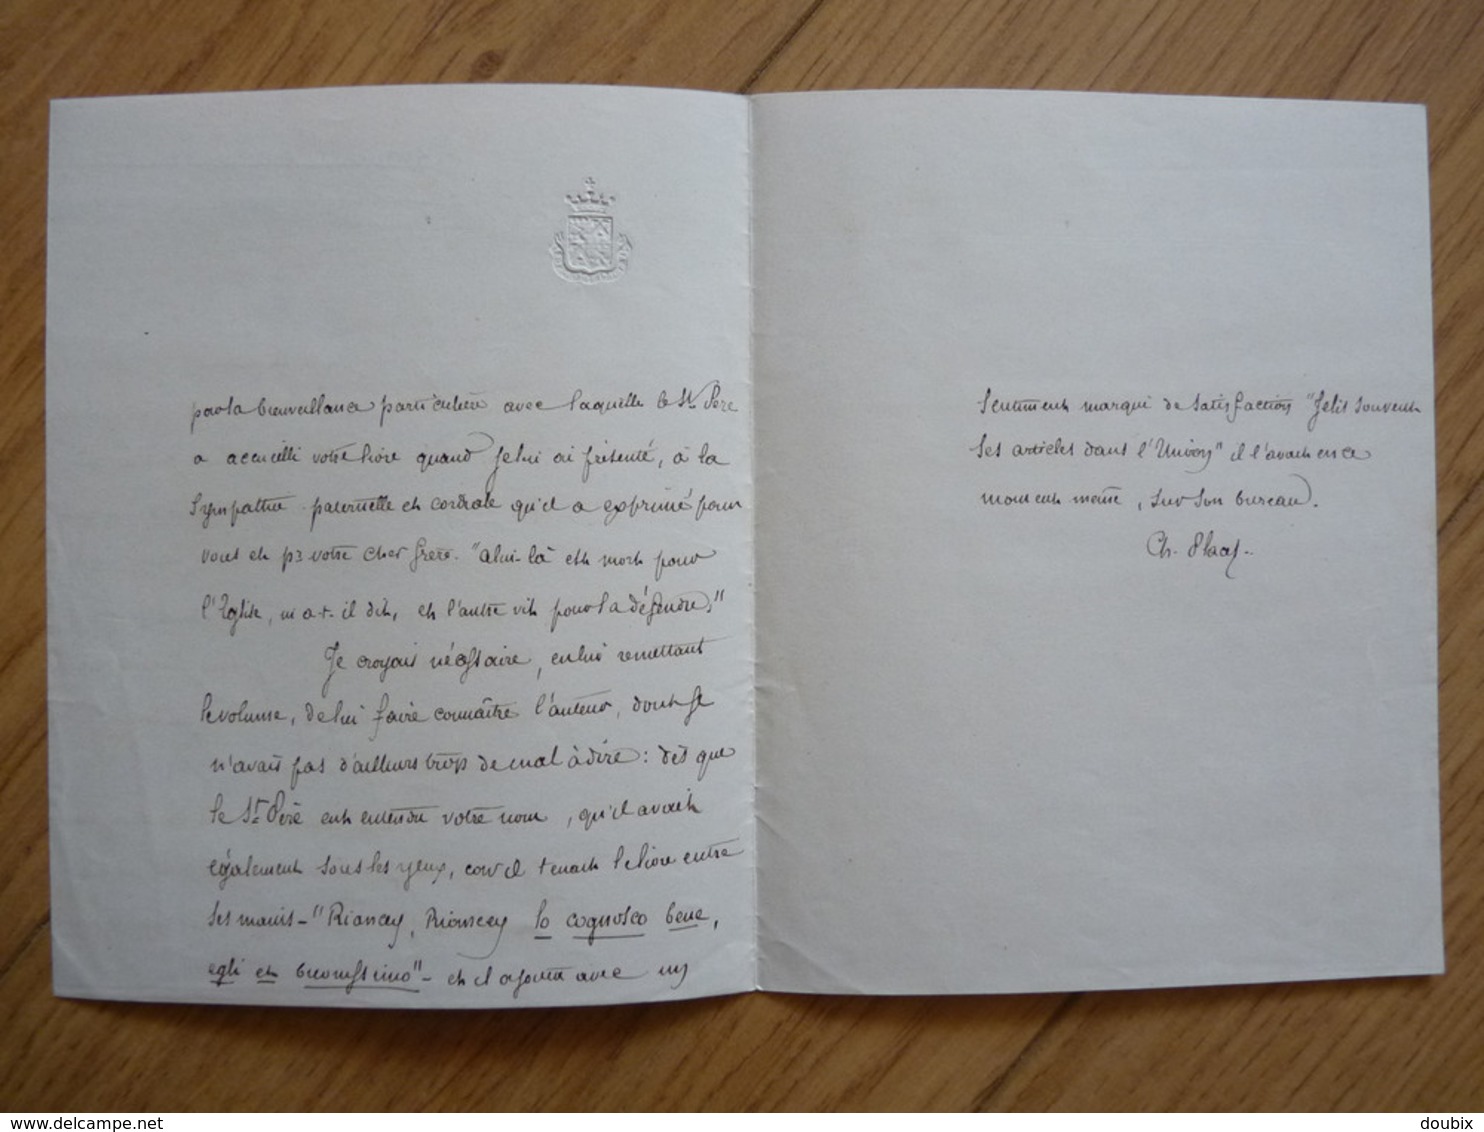 par la bienveillance particulière avec laquelle le St. Père
a accueilli votre livre quand je lui ai présenté, à la
sympathie paternelle et cordiale qu'il a exprimé pour
vous et pr votre cher frère. "Celui-là est mort pour
l'Eglise, m'a-t-il dit, et l'autre vit pour la défendre."
Je croyais nécessaire, en lui remettant
le volume, de lui faire connaître l'auteur, dont je
n'avais pas d'ailleurs trop de mal à dire: dès que
le St. Père eut entendu votre nom, qu'il avait
également sous les yeux, car il tenait le livre entre
ses mains - "Riancey, Riancey lo cognosco bene,
egli et buonissimo" - et il ajouta avec un
sentiment marqué de satisfaction "Je lis souvent
ses articles dans l'Union" il l'avait en ce
moment même, sur son bureau.
Ch.
delcampe.net
doubix